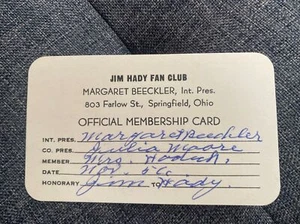 JIM HADY FAN CLUB
MARGARET BEECKLER, Int. Pres.
803 Farlow St., Springfield, Ohio
OFFICIAL MEMBERSHIP CARD
INT. PRES. Margaret Beeckler
CO. PRES. Julia Moore
MEMBER Mrs.
DATE Nov. 56
HONORARY Jim TO Hady